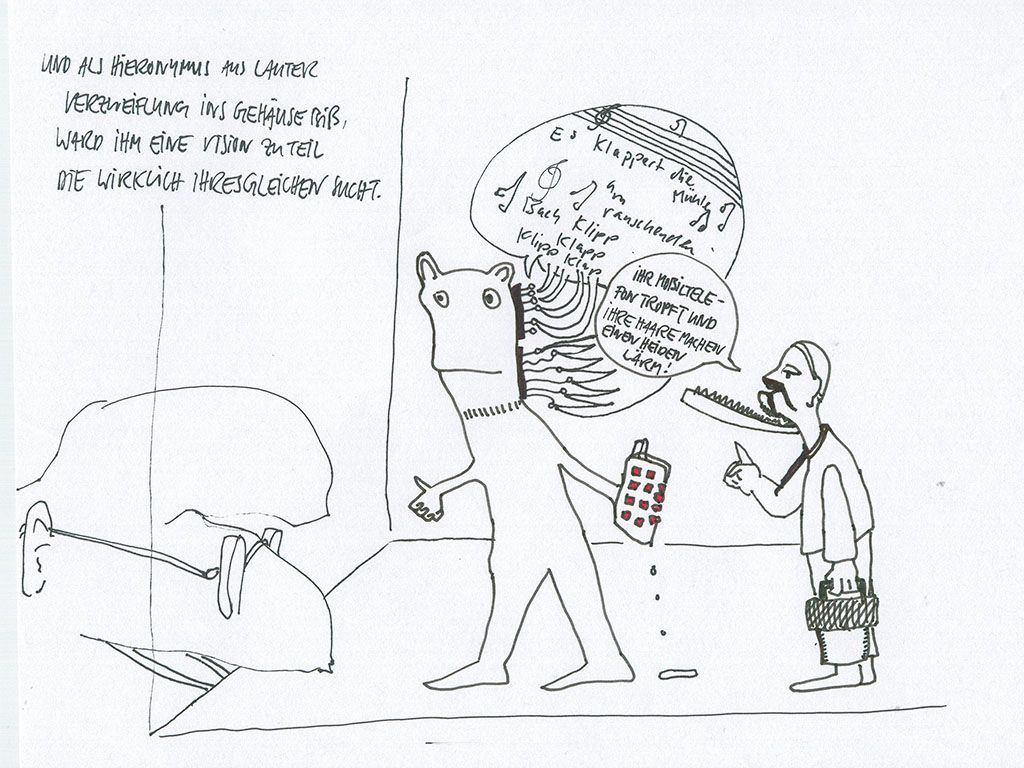 UND ALS HIERONYMUS AUS LAUTER
VERZWEIFLUNG INS GEHÄUSE BIß,
WARD IHM EINE VISION ZU TEIL
DIE WIRKLICH IHRESGLEICHEN SUCHT.
Es Klappert die
Mühle
am
rauschenden
Bach Klipp
Klapp
Klipp Klap
IHR MOBILTELE-
FON TROPFT UND
IHRE HAARE MACHEN
EINEN HEIDEN
LÄRM!